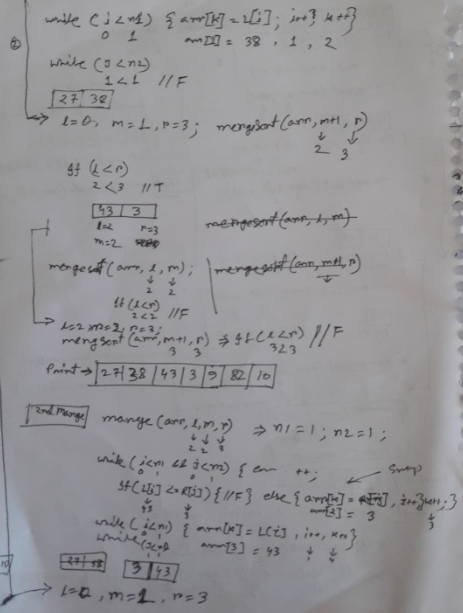 while (i<n1) {arr[k]=L[i]; i++; k++}
0 1 arr[1] = 38, 1, 2
②
while (j<n2)
1<1 //F
27 38
l=0, m=1, r=3; mergesort(arr, m+1, r)
2 3
if (l<r)
2<3 //T
43 3
l=2 r=3
m=2
mergesort(arr, l, m)
mergesort(arr, l, m);
2 2
mergesort(arr, m+1, r)
if(l<r)
2<2 //F
l=2 m=2, r=3;
mergsort(arr, m+1, r) ⇒ if(l<r) //F
3 3 3<3
Print → 27 38 43 3 9 82 10
2nd Marge marge(arr, l, m, r) ⇒ n1=1; n2=1;
2 2 3
while (i<n1 && j<n2) {
0 1 0 1
swap
if(L[i]<=R[j]) {//F} else {
43 3 arr[2] = 3
3
while (i<n1) {arr[k]=L[i], i++, k++}
0 1 arr[3] = 43
while
27 38 3 43
l=0, m=1, r=3